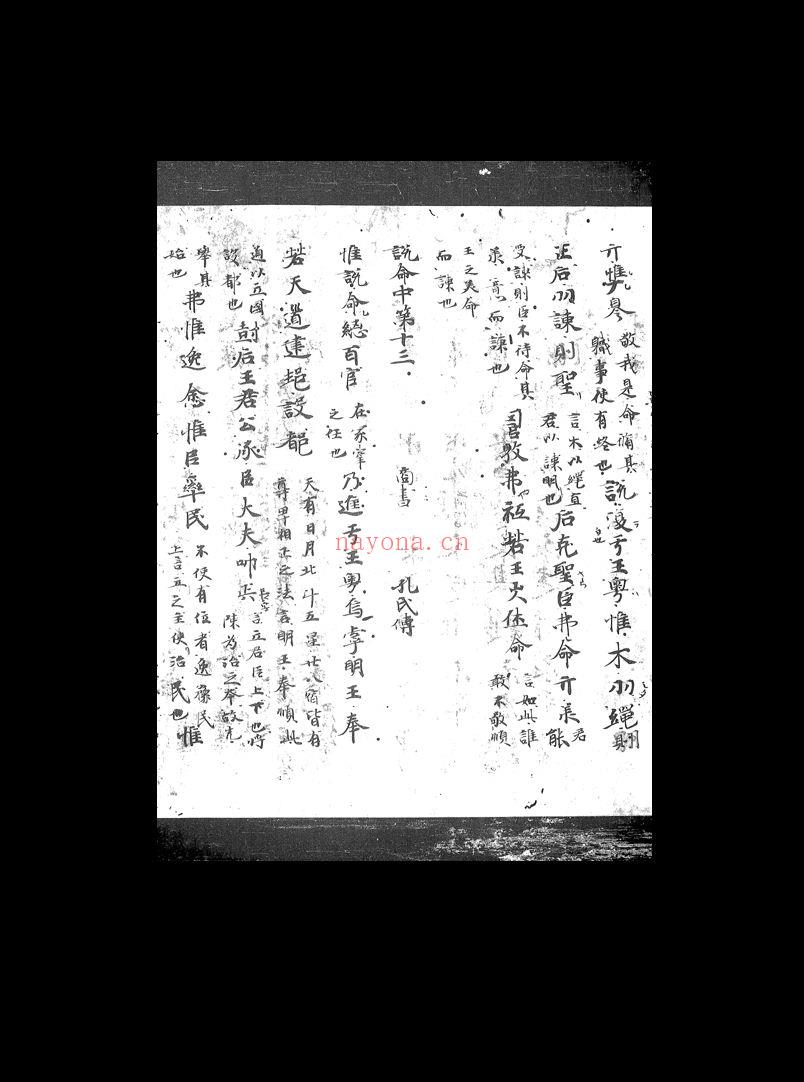 亓惟𠬝敬我是命脩其
職事使有終也說復于王粵惟木𠛱繩則
正后𠛱諫則聖言木以繩直
君以諫明也后克聖臣弗命亓承君能
受諫則臣不待命其
承意而諫也弗祗若王火休命言如此誰
敢不敬順
王之美命
而諫也
說命中第十三 商書 孔氏傳
惟說命總百官在冢宰
之任也乃進于王粵烏虖明王奉
若天道建邦設都天有日月北斗五星廿八宿皆有
尊卑相正之法言明王奉順此
道以立國
設都也后王君公承臣大夫師言立君臣上下也將
陳為治之本故先
舉其
始也弗惟逸念惟臣率民不使有位者逸豫民
上言立之主使治民也惟
nayona.cn